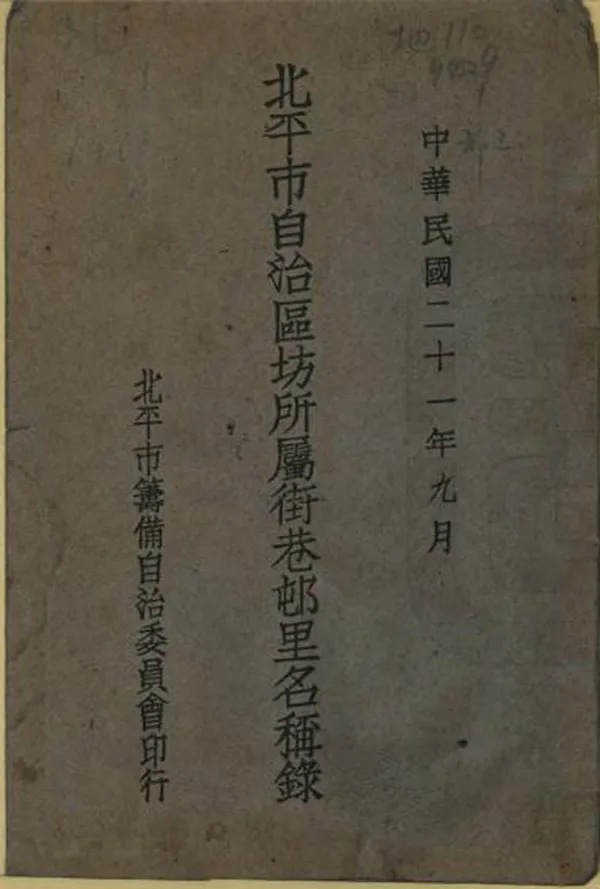 中華民國二十一年九月
北平市自治區坊所屬街巷邨里名稱錄
北平市籌備自治委員會印行
地110